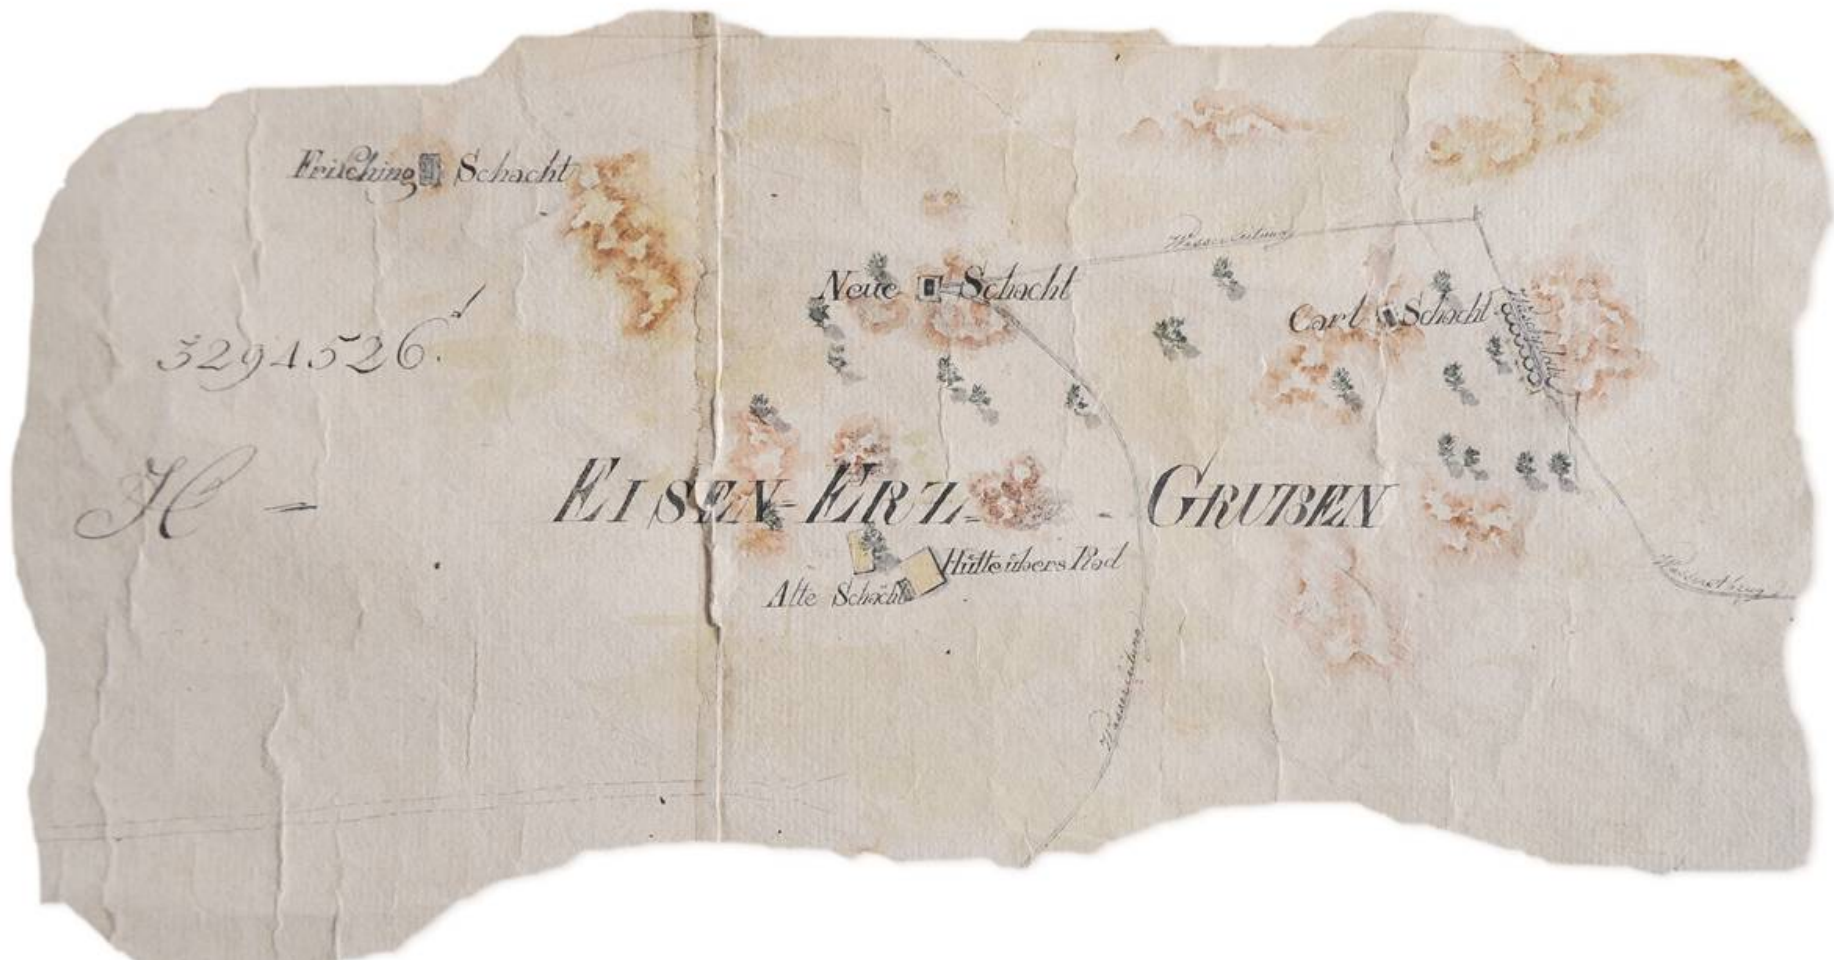 Frisching Schacht
Wasserleitung
Neue Schacht
Carl Schacht
3294526.'
H =
EISEN-ERZ- - GRUBEN
Hütte übers Rad
Alte Schacht
Wasserleitung